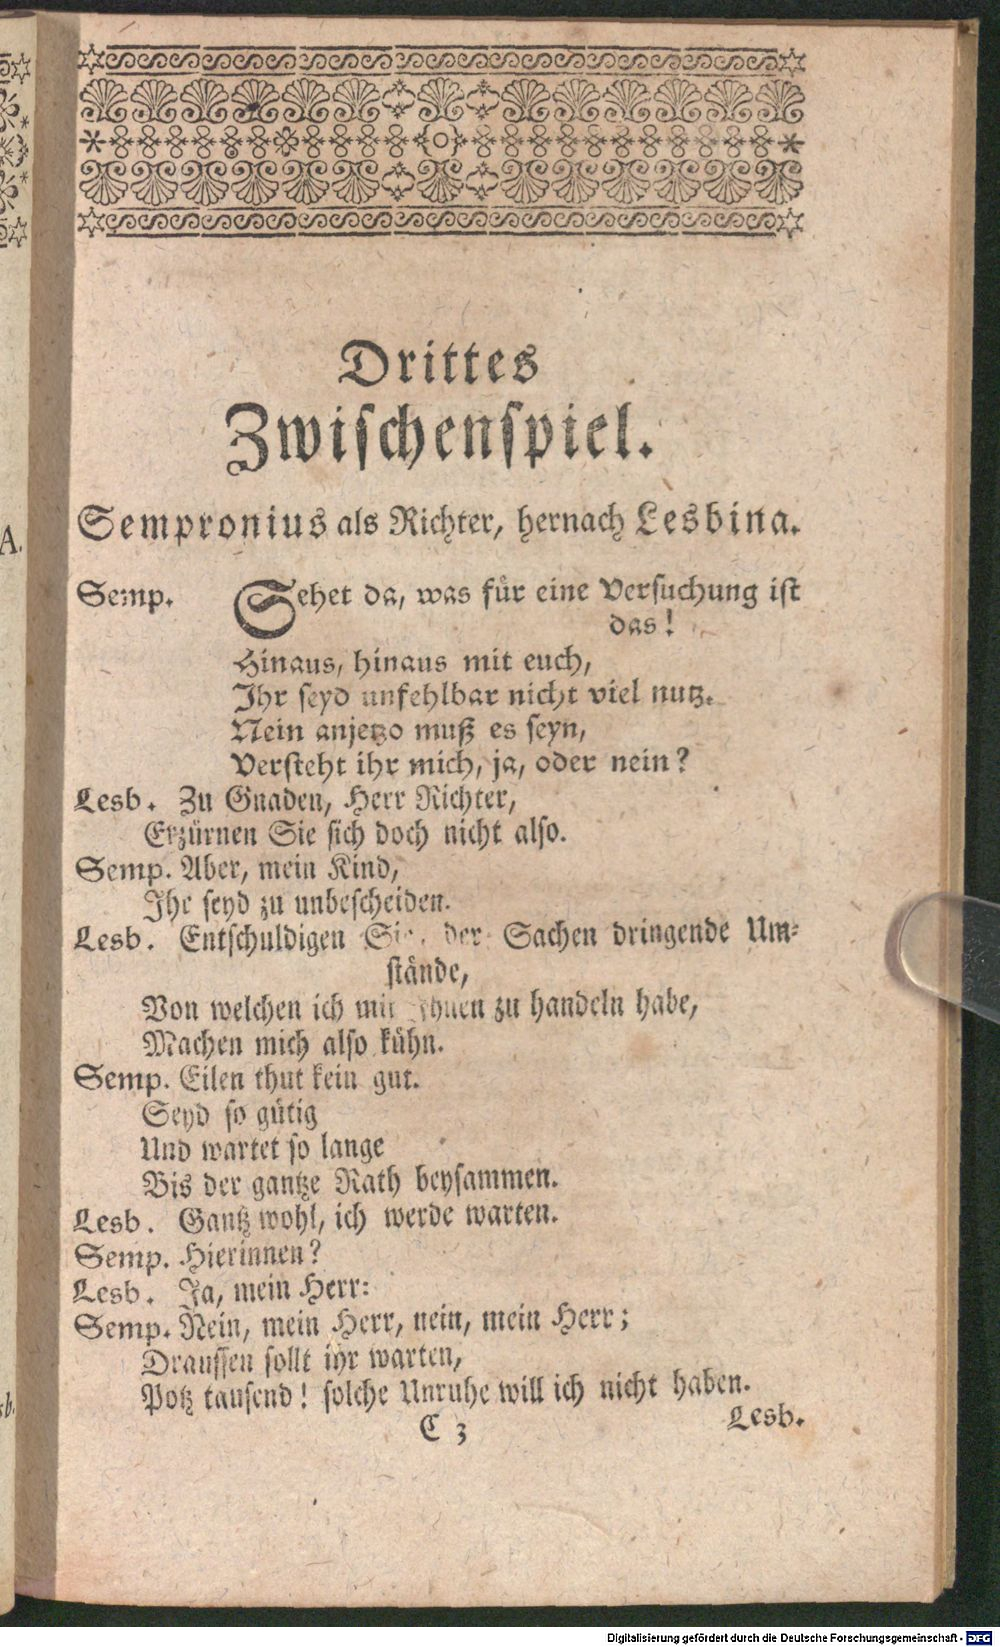 Drittes
Zwischenspiel.
Sempronius als Richter, hernach Lesbina.
A.
Semp. Sehet da, was für eine Versuchung ist
das!
Hinaus, hinaus mit euch,
Ihr seyd unfehlbar nicht viel nutz.
Nein anjetzo muß es seyn,
Versteht ihr mich, ja, oder nein?
Lesb. Zu Gnaden, Herr Richter,
Erzürnen Sie sich doch nicht also.
Semp. Aber, mein Kind,
Ihr seyd zu unbescheiden.
Lesb. Entschuldigen Sie, der Sachen dringende Um-
stände,
Von welchen ich mit Ihnen zu handeln habe,
Machen mich also kühn.
Semp. Eilen thut kein gut.
Seyd so gütig
Und wartet so lange
Bis der gantze Rath beysammen.
Lesb. Gantz wohl, ich werde warten.
Semp. Hierinnen?
Lesb. Ja, mein Herr:
Semp. Nein, mein Herr, nein, mein Herr;
Draussen sollt ihr warten,
Potz tausend! solche Unruhe will ich nicht haben.
C 3
Lesb.
Digitalisierung gefördert durch die Deutsche Forschungsgemeinschaft - DFG